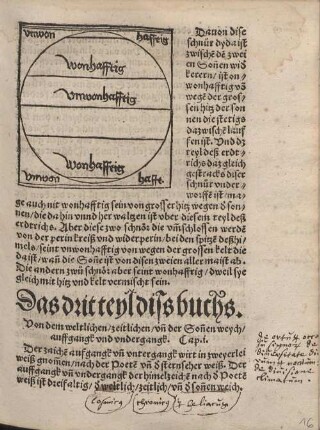 vnwon hafftig
wonhafftig
Vnwonhafftig
wonhafftig
Vnwon hafft.
Dauon dise
schnür dy da ist
zwischē dē zwei
en Soñen wid
kerern / ist on
wonhafftig vō
wegē der gros
sen hitz der son
nen die stetigs
da zwischē lauf
fen ist. Vnd dz
teyl deß erdt
richs daz gleich
gestracks diser
schnür vnder
worffē ist / ma
ge auch nit wonhafftig sein von grosser hitz wegen d son
nen / die da hin vnnd her waltzen ist vber disem teyl deß
erdtrichs. Aber dise zwo schnōr die vmschlossen werdē
von der perinkreiß vnd widerperin / bei den spitzē deß hi
mels / seint vnwonhafftig von wegen der grossen kelt die
da ist / wan die Soñe ist von disen zweien aller maist ab.
Die andern zwū schnör aber seint wonhafftig / dweil sye
gleich mit hitz vnd kelt vermischt sein.
Das drit teyl diß buchs.
Von dem weltlichen / zeitlichen / vñ der Soñen weych /
auffgangk vnd vndergangk. Cap. i.
Der zaichē auffgangk vñ vntergangk wirt in zweyerlei
weiß gnomen / nach der Poetē vñ dsternseher weiß. Der
auffgangk vñ vndergangk der himelzeich nach d Poetē
weiß ist dreifaltig / d weltlich / zeitlich / vñ d soñen weich.
cosmicus chronicus
16